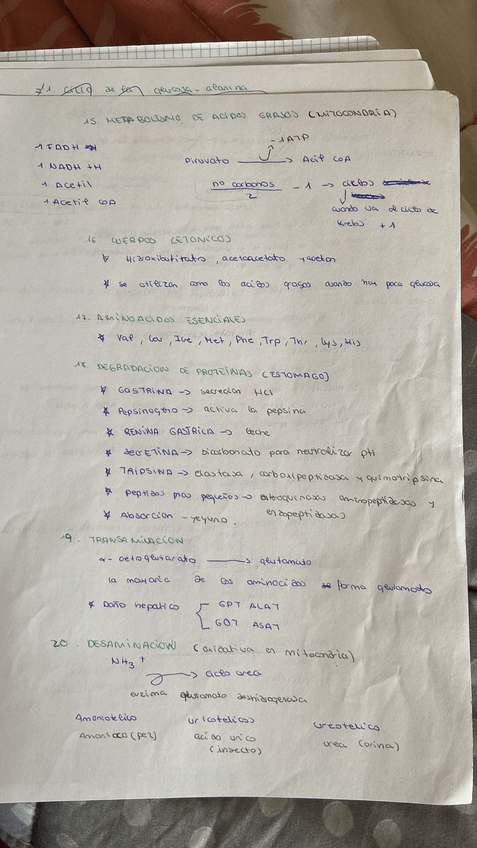 21. Ciclo de la glucosa - alanina
15. METABOLISMO DE ACIDOS GRASOS (MITOCONDRIA)
-1 ATP
1 FADH
Piruvato → Acil CoA
1 NADH +H
1 Acetil
nº carbonos / 2 - 1 → ciclos
1 Acetil CoA
cuando va al ciclo de
Krebs +1
16. CUERPOS CETONICOS
* Hidroxibutirato, acetoacetato, y aceton
* Se utilizan como los acidos grasos cuando hay poca glucosa
17. AMINOACIDOS ESENCIALES
* Val, Leu, Ile, Met, Phe, Trp, Thr, Lys, His
18. DEGRADACION DE PROTEINAS (ESTOMAGO)
* GASTRINA → secrecion HCl
* Pepsinogeno → activa la pepsina
* RENINA GASTRICA → Leche
* SECRETINA → Bicarbonato para neutralizar pH
* TRIPSINA → elastasa, carboxipeptidasa y quimotripsina
* Peptidos mas pequeños → enteroquinasas aminopeptidasas y
endopeptidasas
* Absorcion - yeyuno.
19. TRANSAMINACION
α-cetoglutarato → glutamato
la mayoria de los aminoacidos forma glutamato
* Daño hepatico { GPT ALAT
GOT ASAT
20. DESAMINACION (oxidativa en mitocondria)
NH3 +
→ ciclo urea
enzima glutamato deshidrogenasa
Amoniotelico uricotelicos ureotelico
Amoniaco (pez) acido urico urea (orina)
(insecto)